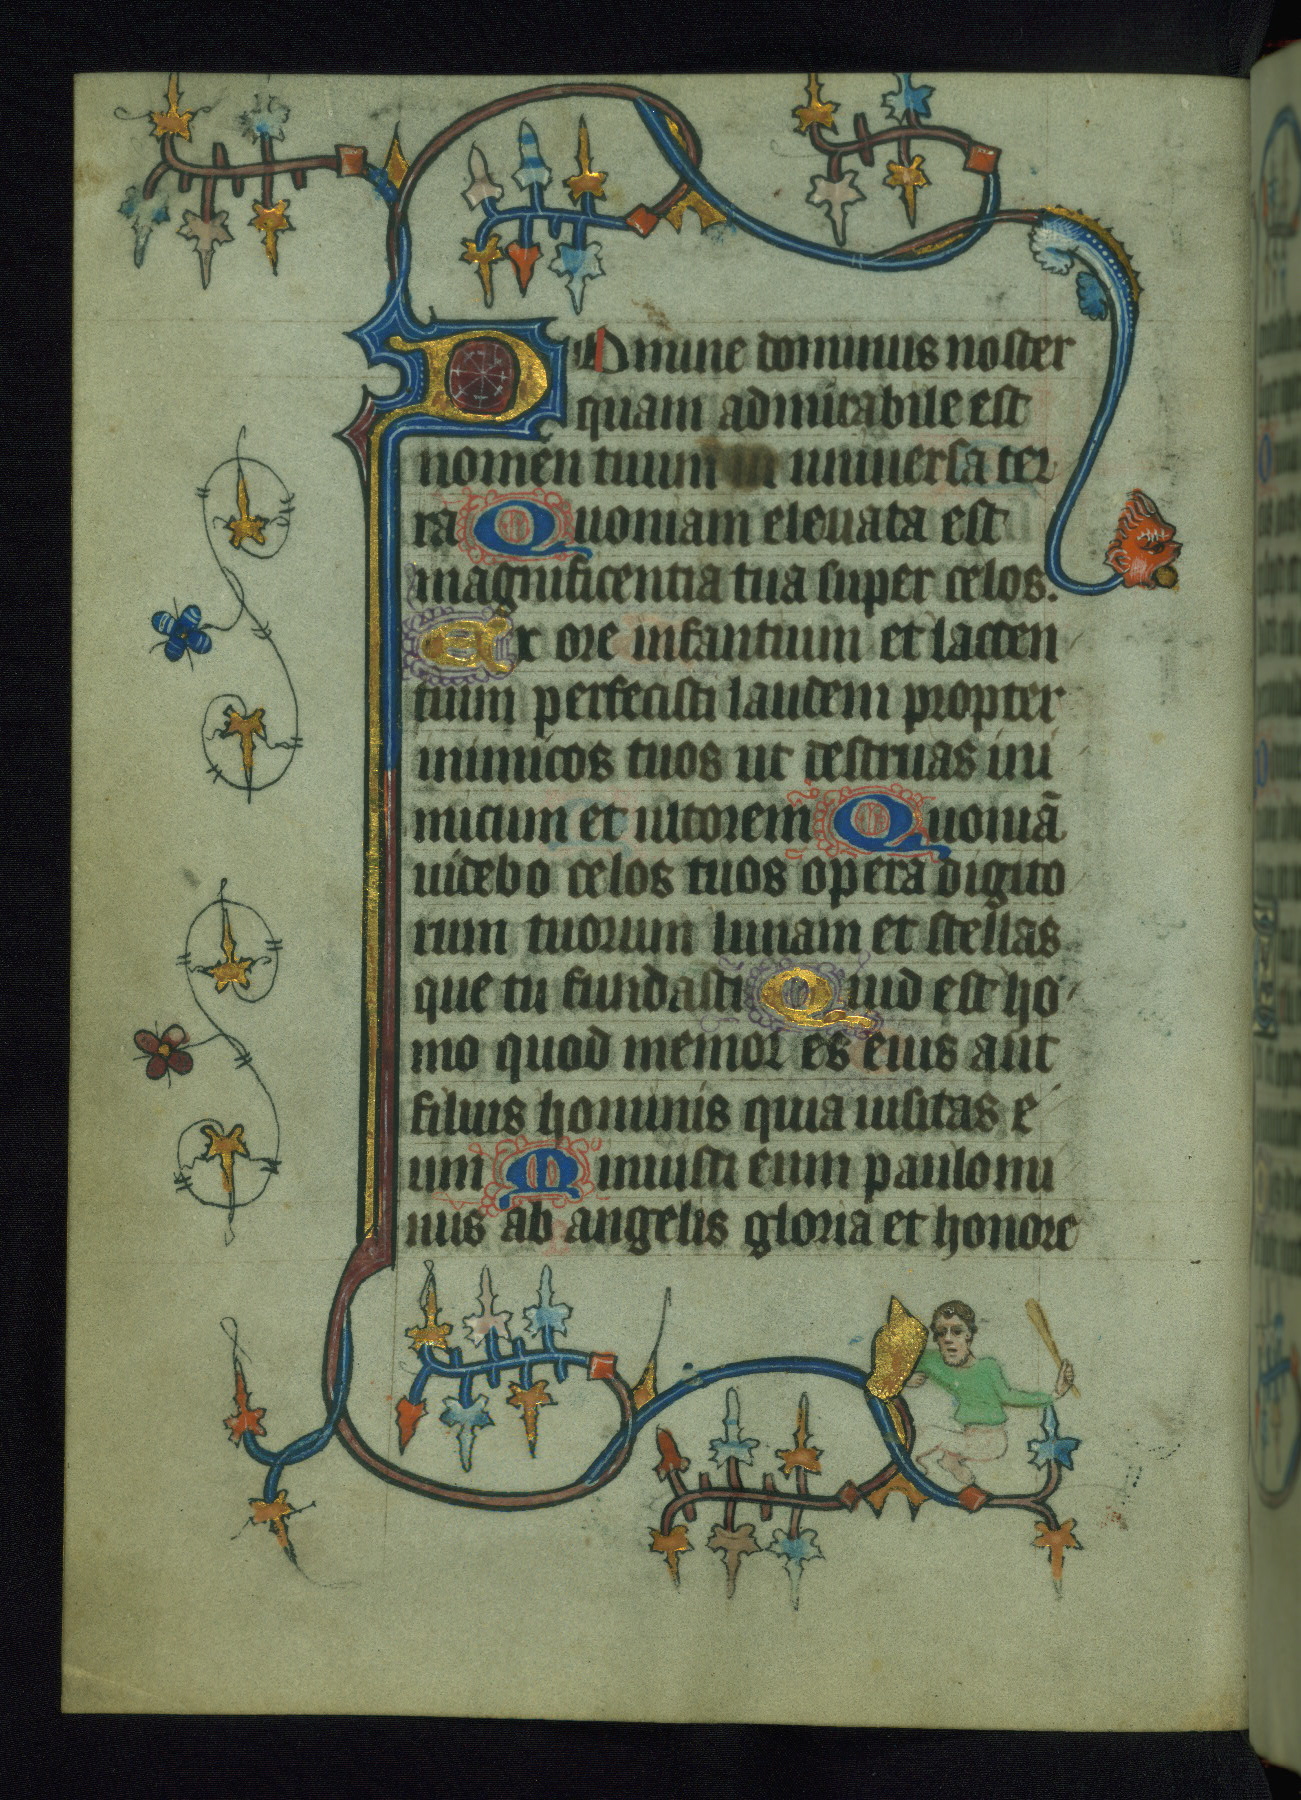 Domine dominus noster
quam admirabile est
nomen tuum in uniuersa ter
ra Quoniam eleuata est
magnificentia tua super celos.
Ex ore infantium et lacten
tium perfecisti laudem propter
inimicos tuos ut destruas ini
micum et ultorem Quoniã
uidebo celos tuos opera digito
rum tuorum lunam et stellas
que tu fundasti Quid est ho
mo quod memor es eius aut
filius hominis quia uisitas e
um Minuisti eum paulomi
nus ab angelis gloria et honore